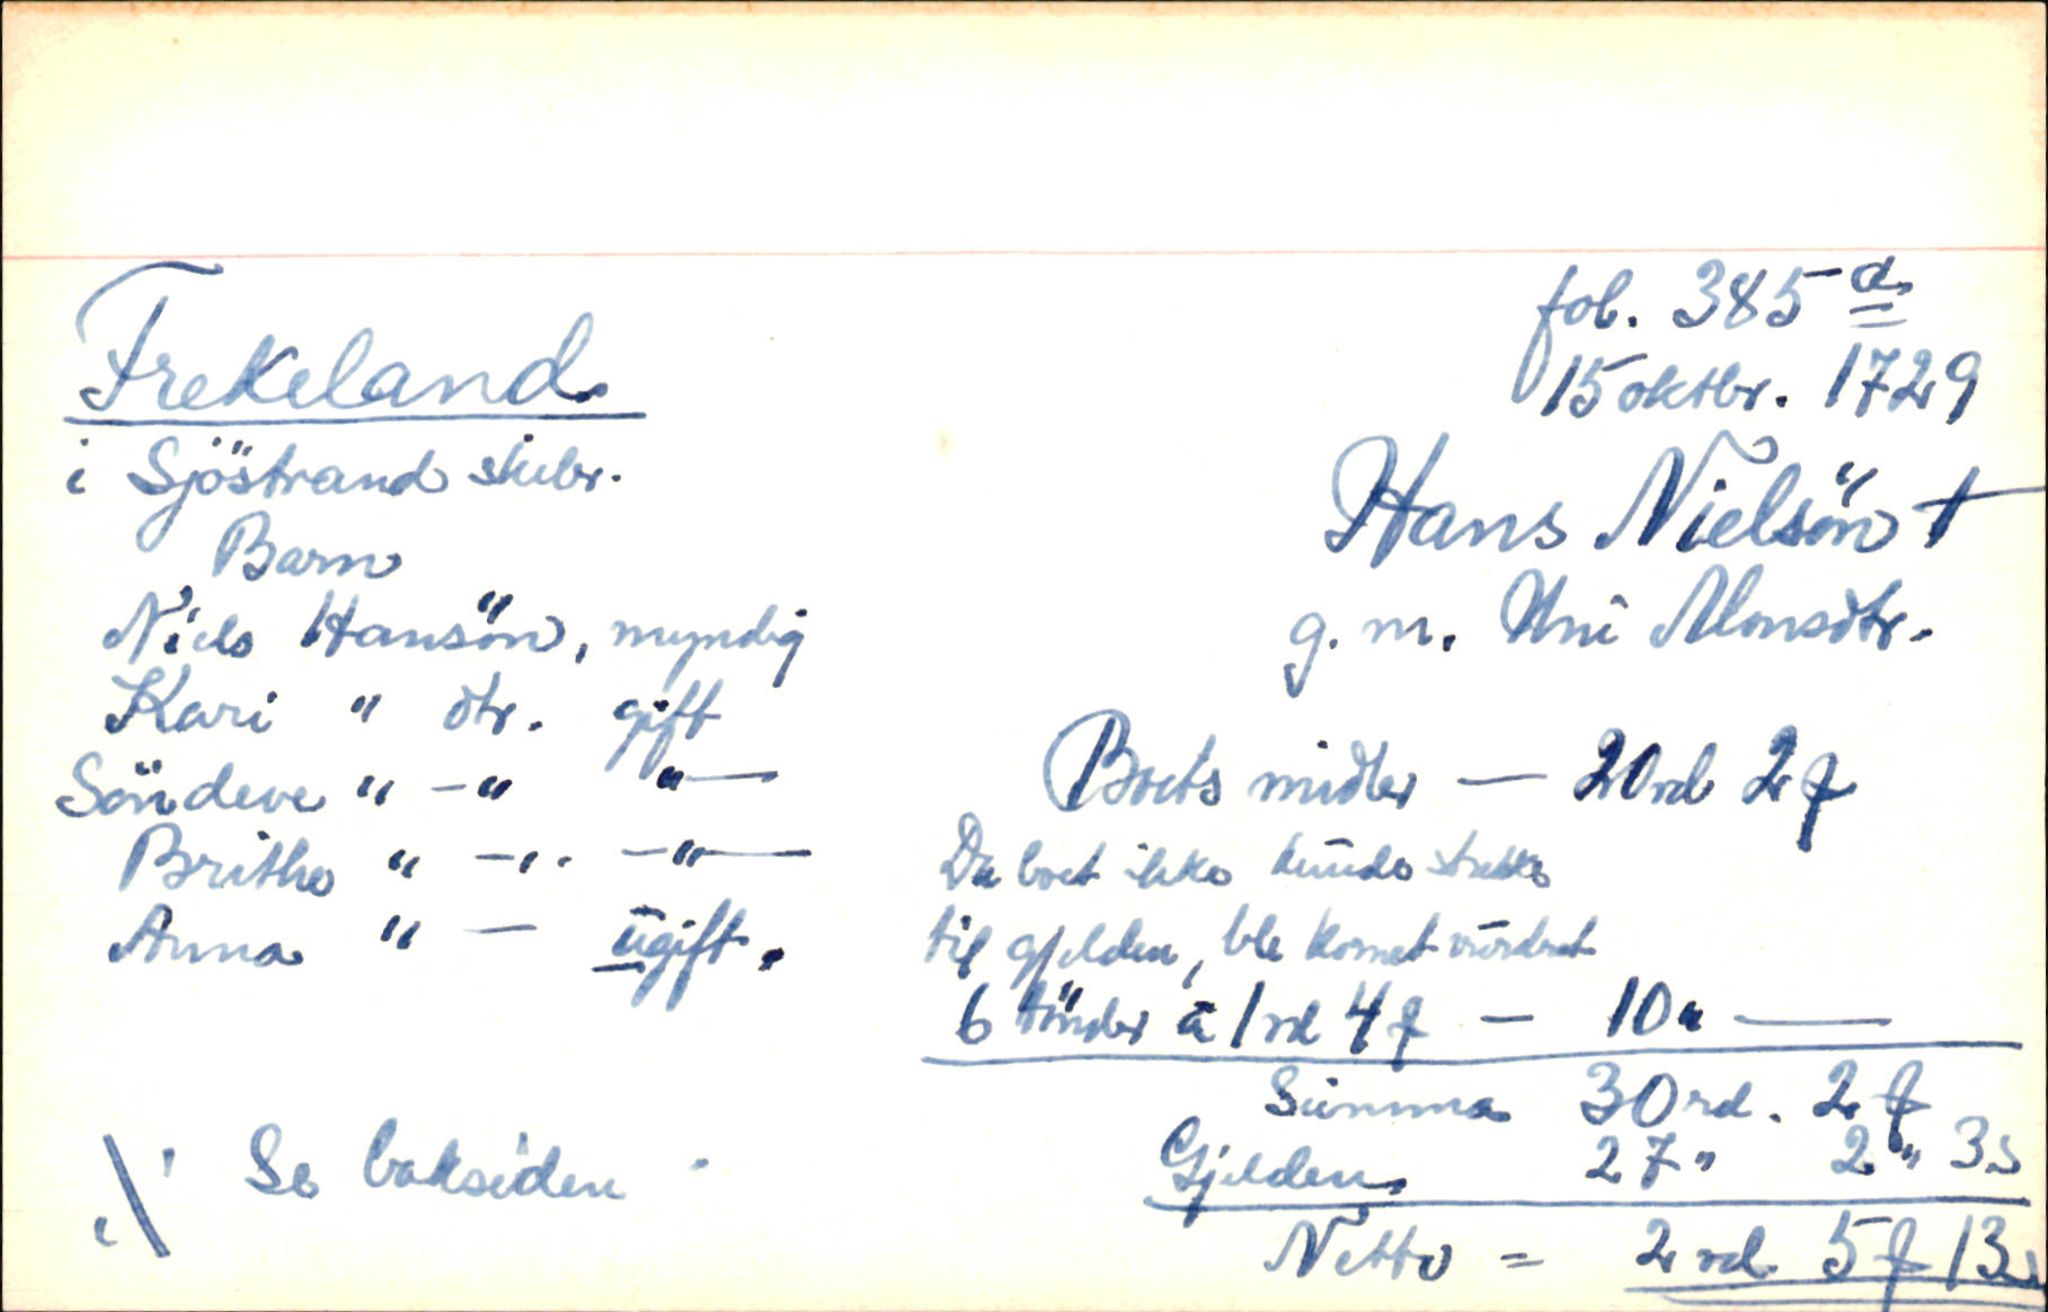 Frekeland
i Sjöstrand skibr.
Barn
Niels Hansön, myndig
Kari " dtr. gift
Söndeve " -" "—
Brithe " -"- -"—
Anna " — ugift.
Se baksiden
fol. 385 a
15 oktbr. 1729
Hans Nielsön †
g. m. Uni Monsdtr.
Boets midler — 20 rd 2 f
Da boet ikke kunde strekke
til gjelden, ble kornet vurdret
6 tönder a 1 rd 4 f — 10 " —
Summa 30 rd. 2 f
Gjelden 27 " 2 " 3 s
Netto = 2 rd. 5 f 13 s